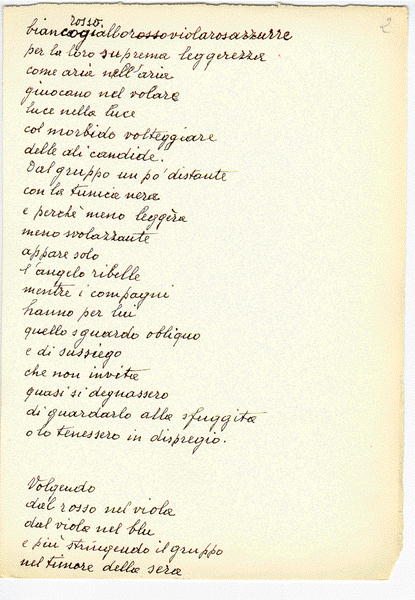 2
rosso
biancogialborossoviolarosazzurre
per la loro suprema leggerezza
come aria nell'aria
giuocano nel volare
luce nella luce
col morbido volteggiare
delle ali candide.
Dal gruppo un po' distante
con la tunica nera
e perchè meno leggèra
meno svolazzante
appare solo
l'angelo ribelle
mentre i compagni
hanno per lui
quello sguardo obliquo
e di sussiego
che non invita
quasi si degnassero
di guardarlo alla sfuggita
o lo tenessero in dispregio.
Volgendo
dal rosso nel viola
dal viola nel blu
e più stringendo il gruppo
nel timore della sera